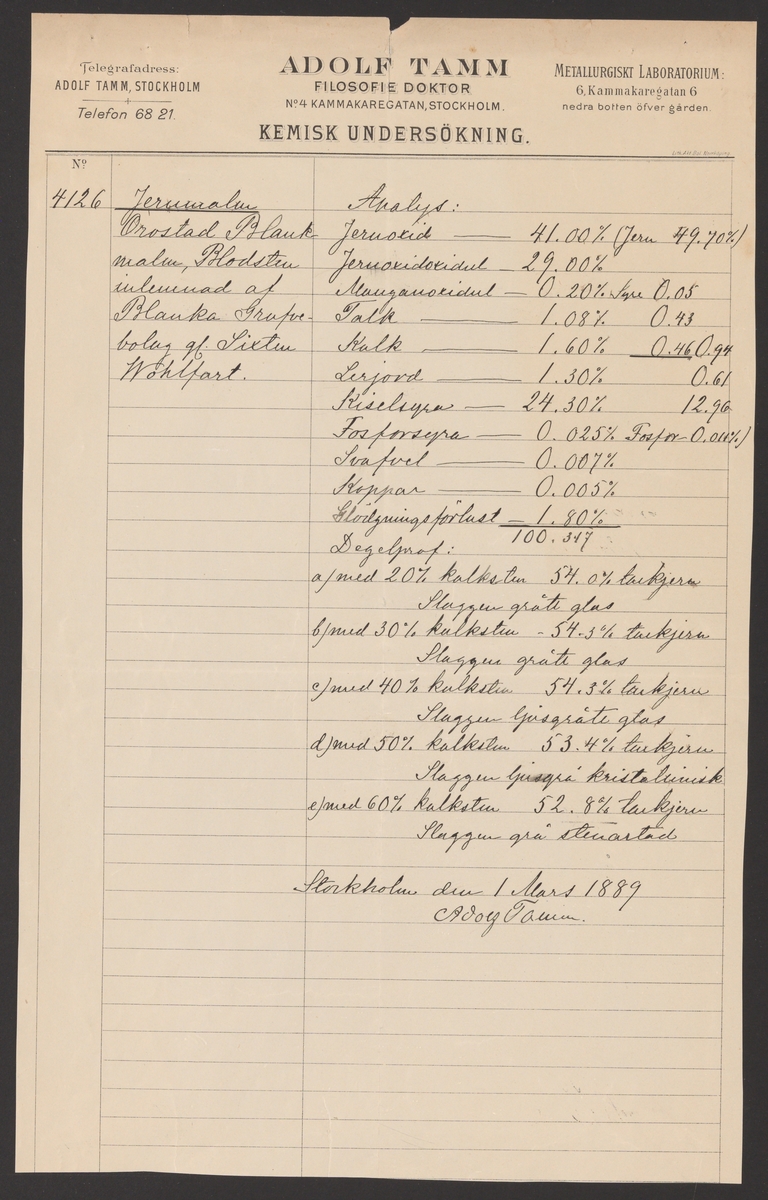 Telegrafadress:
ADOLF TAMM, STOCKHOLM
Telefon 68 21.
ADOLF TAMM
FILOSOFIE DOKTOR
No 4 KAMMAKAREGATAN, STOCKHOLM.
KEMISK UNDERSÖKNING.
METALLURGISKT LABORATORIUM:
6, Kammakaregatan 6
nedra botten öfver gården.
No
4126
Jernmalm
Örostad Blank-
malm, Blodsten
inlemnad af
Blanka Grufve-
bolag gf. Sixten
Wohlfart.
Analys:
Jernoxid — 41.00% (Jern 49.70%)
Jernoxidoxidul — 29.00%
Manganoxidul — 0.20% Syre 0.05
Talk — 1.08% 0.43
Kalk — 1.60% 0.46 0.94
Lerjord — 1.30% 0.61
Kiselsyra — 24.30% 12.96
Fosforsyra — 0.025% Fosfor 0.011%)
Svafvel — 0.007%
Koppar — 0.005%
Glödgningsförlust — 1.80%
100.347
Degelprof:
a) med 20% kalksten 54.0% tackjern
Slaggen gråte glas
b) med 30% kalksten - 54.3% tackjern
Slaggen gråte glas
c) med 40% kalksten 54.3% tackjern
Slaggen ljusgråte glas
d) med 50% kalksten 53.4% tackjern
Slaggen ljusgrå kristallinisk
e) med 60% kalksten 52.8% tackjern
Slaggen grå stenartad
Stockholm den 1 Mars 1889
Adolf Tamm.